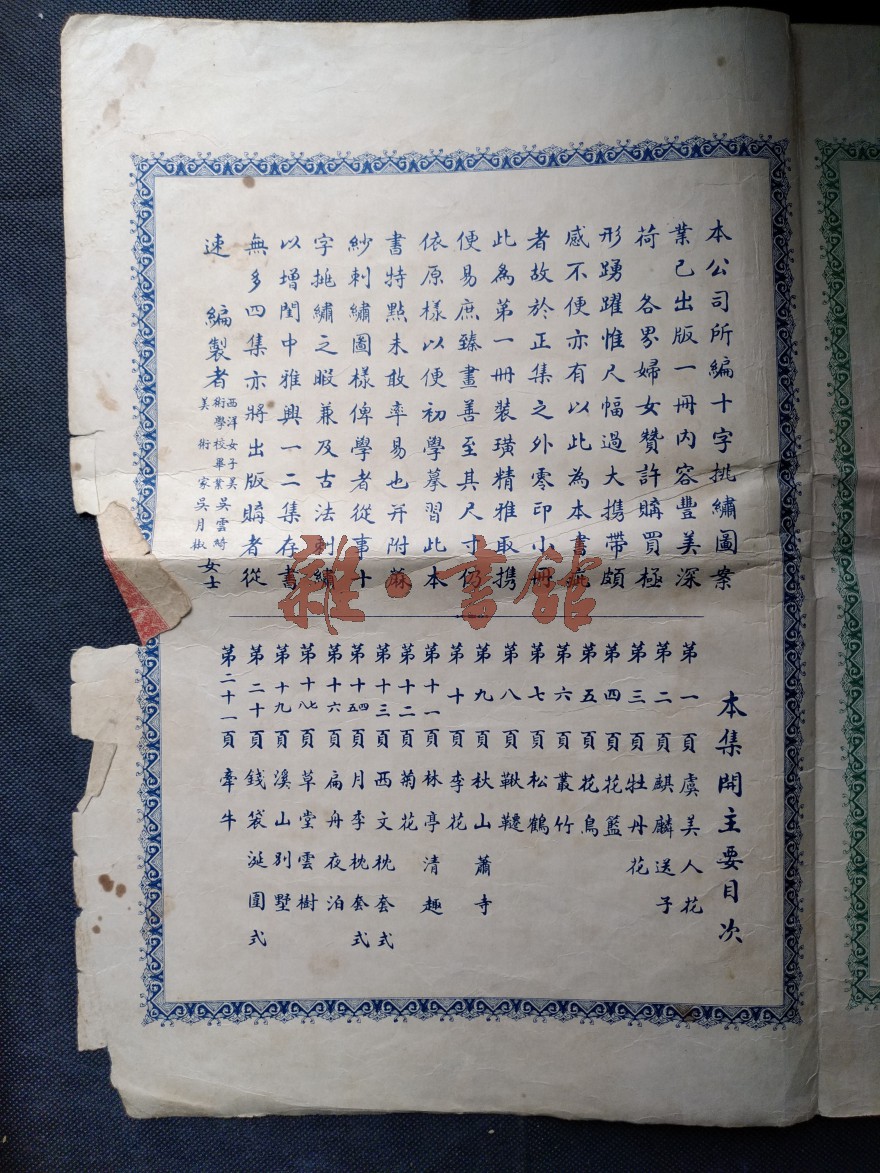 本公司所編十字挑繡圖案
業已出版一冊內容豐美深
荷　各界婦女贊許購買極
形踴躍惟尺幅過大攜帶頗
感不便亦有以此為本書疵
者故於正集之外零印小冊
此為第一冊裝璜精雅取携
便易庶臻畫善至其尺寸仍
依原樣以便初學摹習此本
書特點未敢率易也并附蔴
紗刺繡圖樣俾學者從事十
字挑繡之暇兼及古法刺繡
以增閨中雅興一二集存書
無多四集亦將出版購者從
速　編製者
西洋女子美
術學校畢業 吳雲綺
美術家 吳月椒 女士
本集開主要目次
第一頁 虞美人花
第二頁 麒麟送子
第三頁 牡丹花
第四頁 花籃
第五頁 花鳥
第六頁 叢竹
第七頁 松鶴
第八頁 鞦韆
第九頁 秋山蕭寺
第十頁 李花
第十一頁 林亭清趣
第十二頁 菊花
第十三頁 西文枕套式
第十四五頁 月季枕套式
第十六頁 扁舟夜泊
第十七八頁 草堂雲樹
第十九頁 溪山別墅
第二十頁 錢袋涎圍式
第二十一頁 牽牛
雜·書館